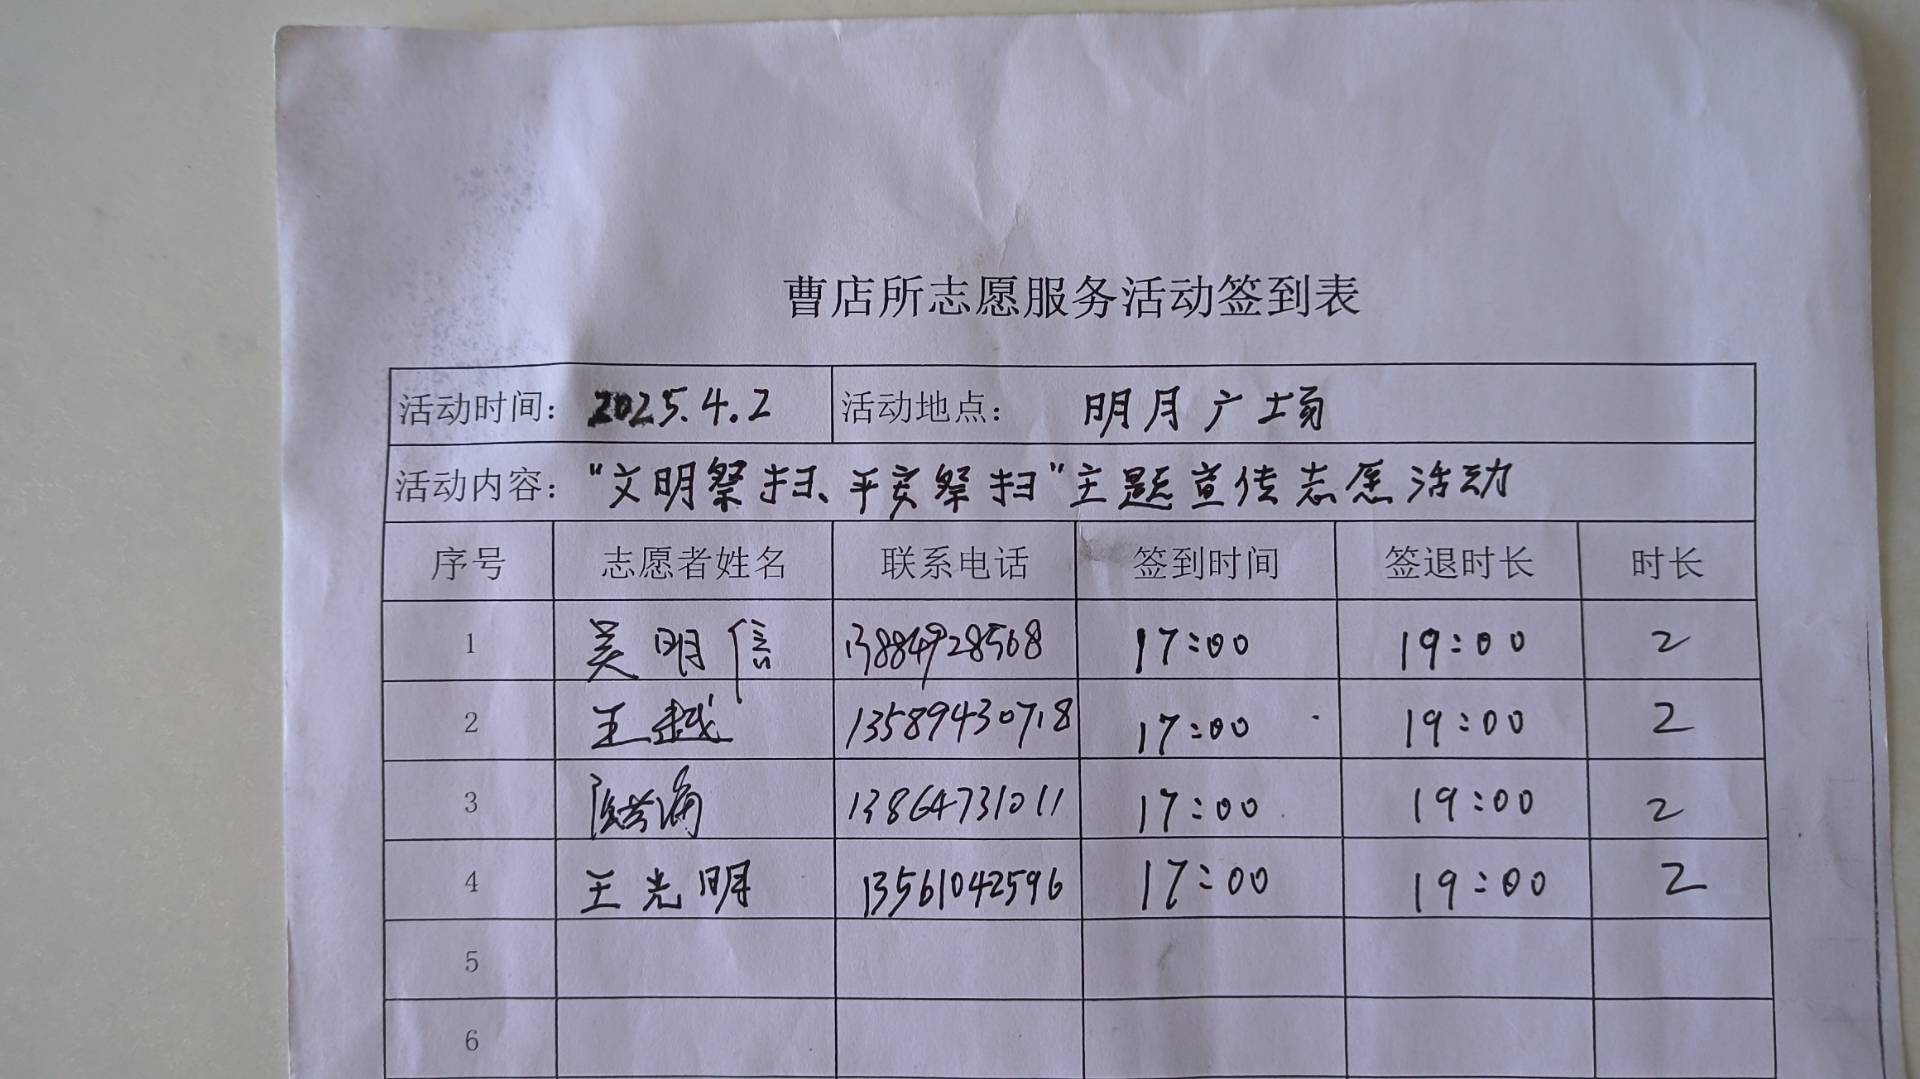 曹店所志愿服务活动签到表
活动时间: 2025.4.2 活动地点: 明月广场
活动内容: “文明祭扫、平安祭扫”主题宣传志愿活动
序号 志愿者姓名 联系电话 签到时间 签退时长 时长
1 吴明信 13884928568 17:00 19:00 2
2 王越 13589430718 17:00 19:00 2
3 13864731011 17:00 19:00 2
4 王光明 13561042596 17:00 19:00 2
5
6